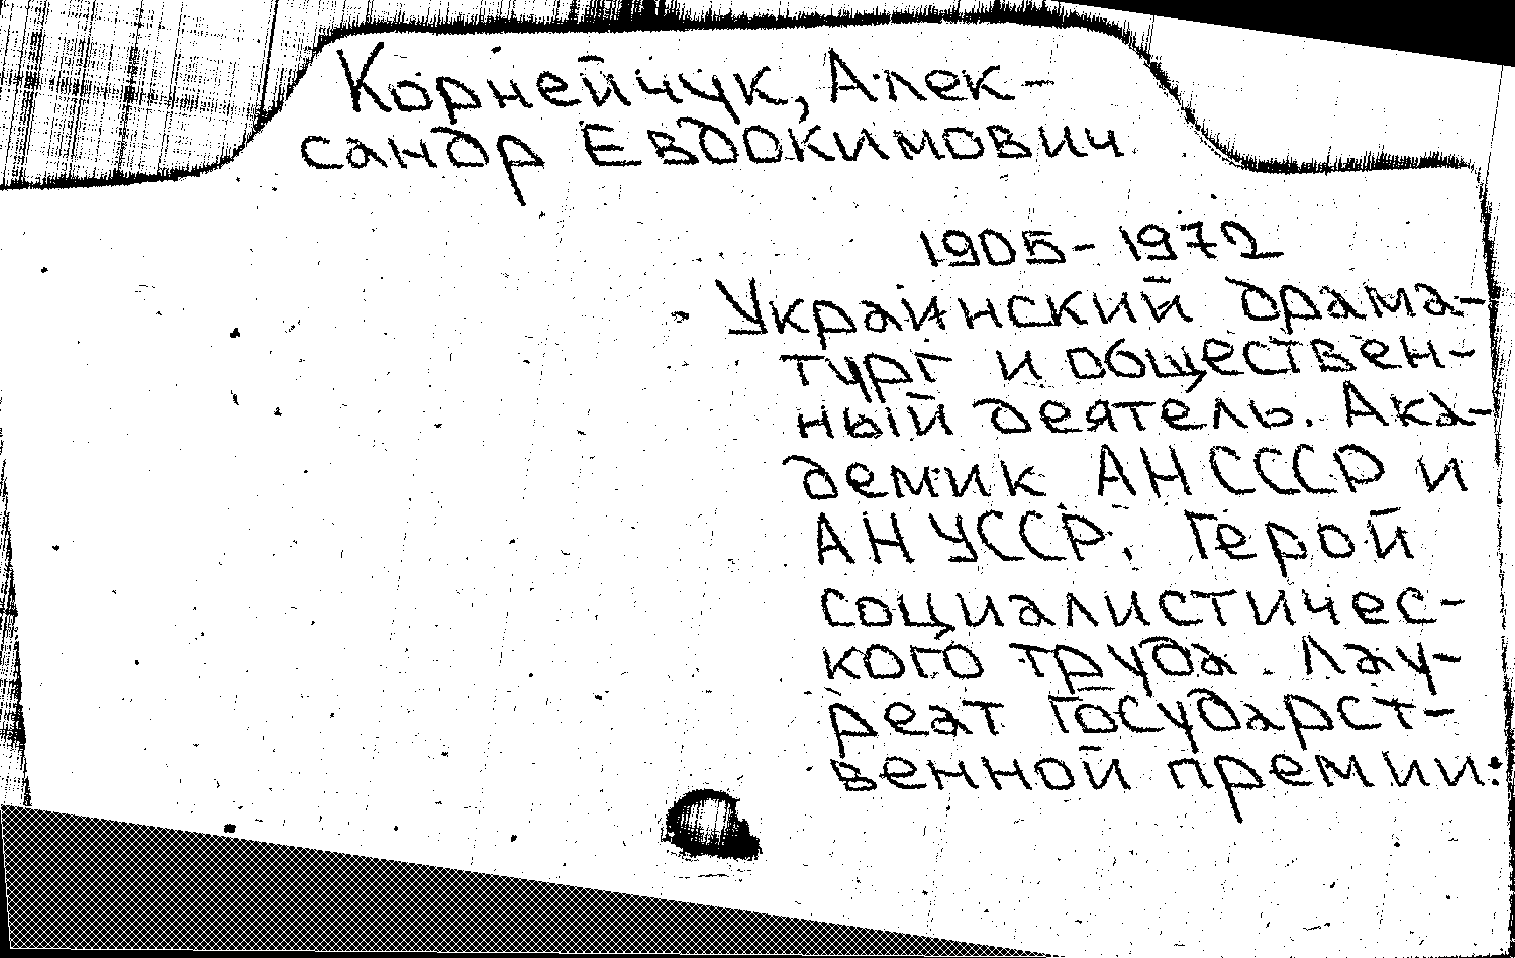 Корнейчук, Алек-
сандр Евдокимович
1905-1972
Украинский драма-
тург и обществен-
ный деятель. Ака-
демик АН СССР и
АН УССР. Герой
социалистичес-
кого труда. Лау-
реат Государст-
венной премии.